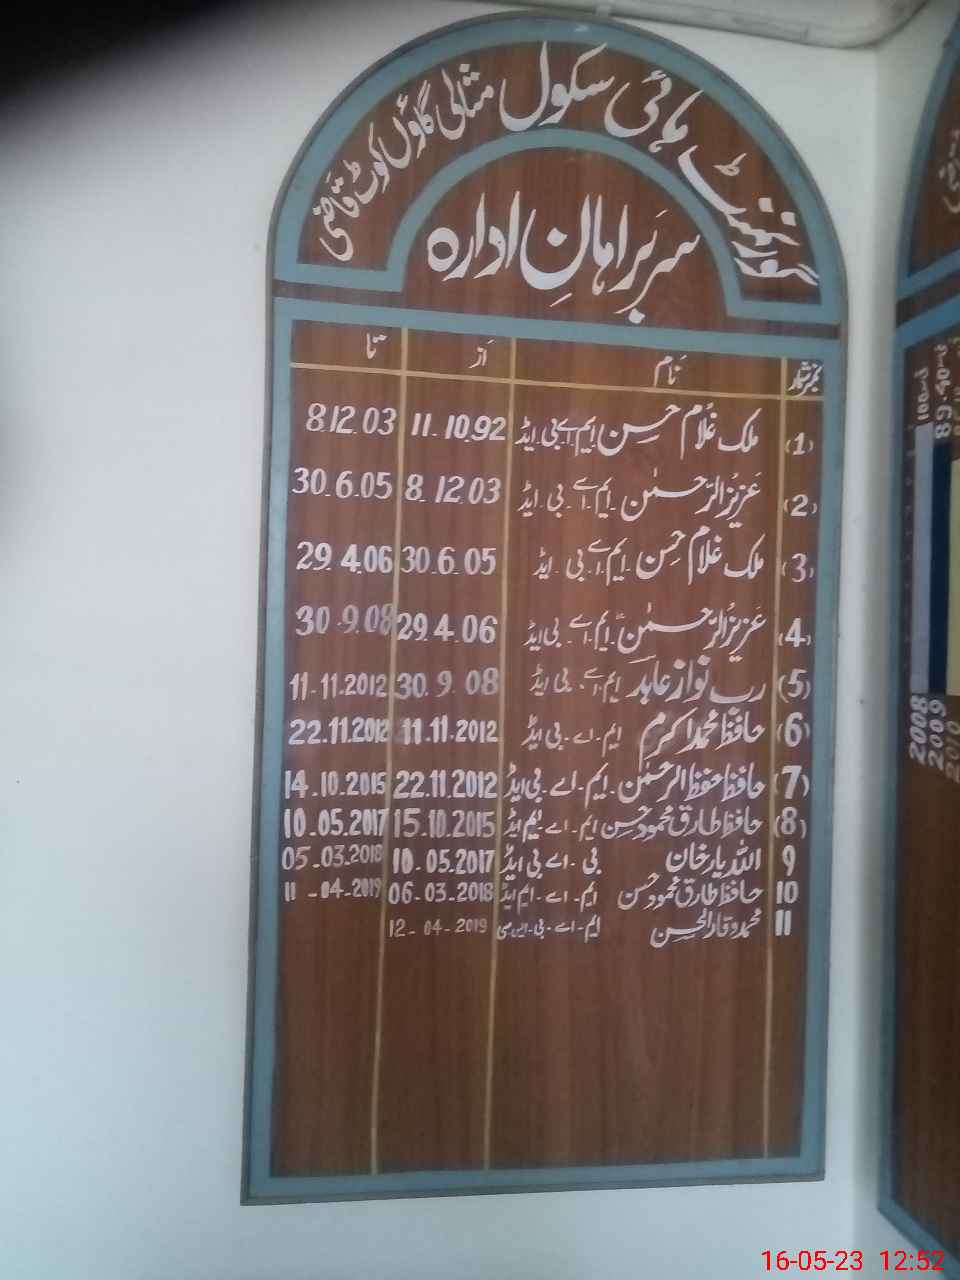 گورنمنٹ ہائی سکول مثالی گاؤں کوٹ قاضی
سربراہانِ ادارہ
نمبرشمار نام از تا
(1) ملک غلام حسن ایم۔اے بی۔ایڈ 11-10.92 8.12.03
(2) عزیزالرحمٰن ایم۔اے۔بی۔ایڈ 8.12.03 30.6.05
(3) ملک غلام حسن ایم۔اے بی۔ایڈ 30.6.05 29.4.06
(4) عزیزالرحمٰن ایم۔اے۔بی۔ایڈ 29.4.06 30.9.08
(5) رب نواز عابد ایم۔اے۔بی۔ایڈ 30.9.08 11-11.2012
(6) حافظ محمد اکرم ایم۔اے۔بی ایڈ 11.11.2012 22.11.2012
(7) حافظ حفظ الرحمٰن۔ایم۔اے۔بی ایڈ 22.11.2012 14.10.2015
(8) حافظ طارق محمود حسن ایم۔اے۔ایم ایڈ 15.10.2015 10.05.2017
9 اللہ یار خان بی۔اے بی ایڈ 10.05.2017 05-03.2018
10 حافظ طارق محمود حسن ایم۔اے۔ایم ایڈ 06-03-2018 11-04-2019
11 محمد وقارالحسن ایم۔اے۔بی۔ایس سی 12-04-2019
100
89.40
2008
2009
2010
16-05-23 12:52